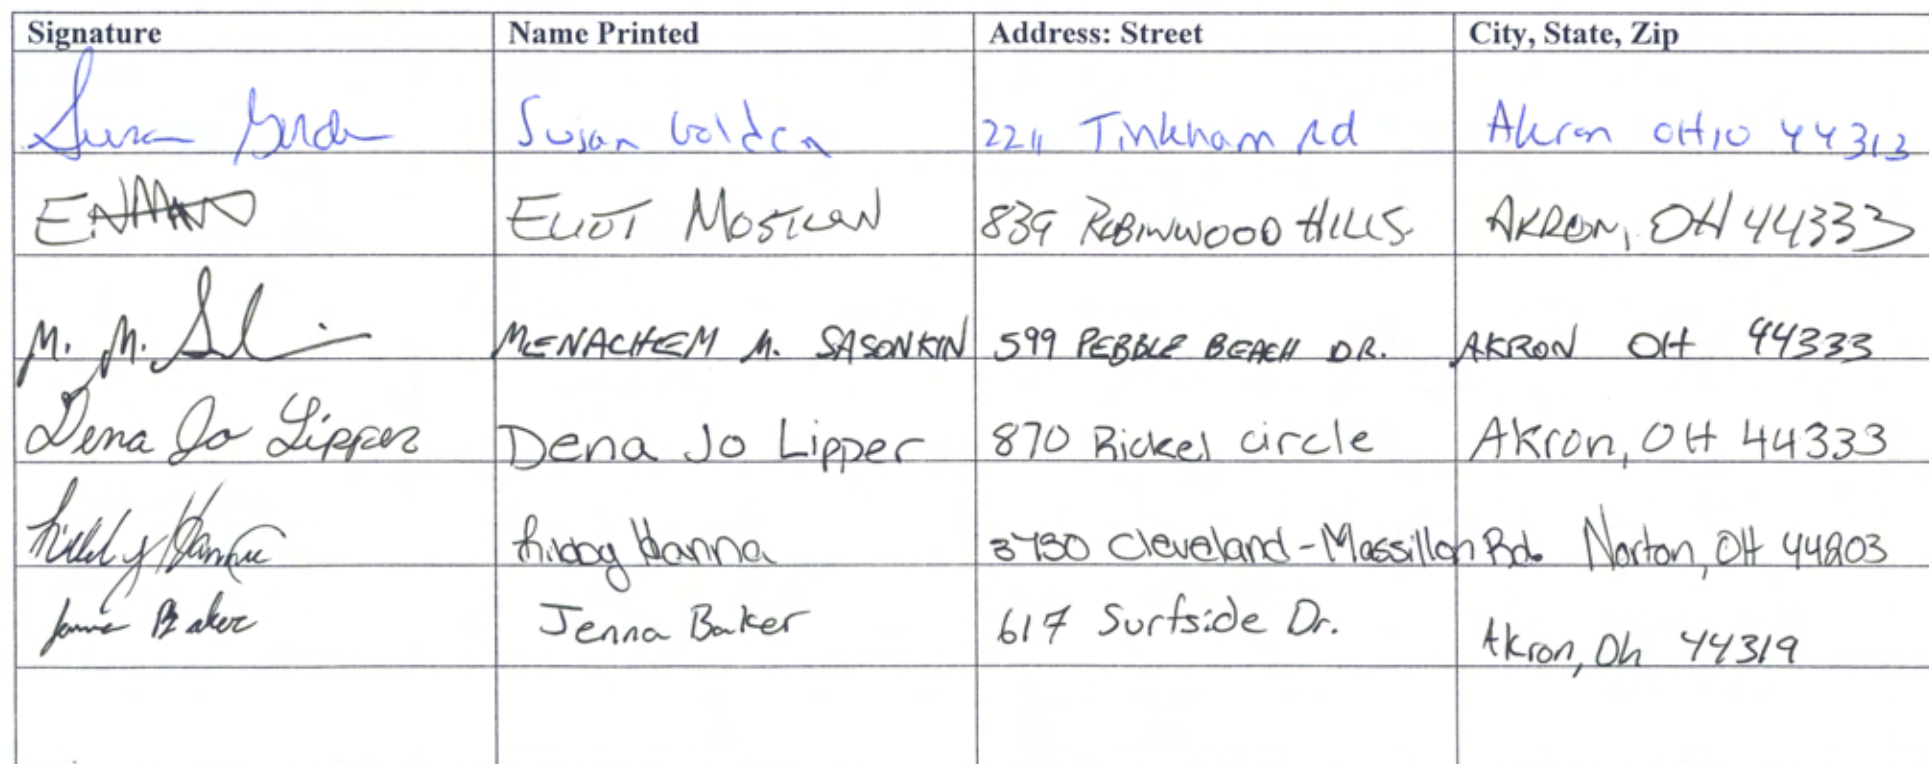 Signature Name Printed Address: Street City, State, Zip
Susan Golden 2211 Tinkham Rd Akron OHIO 44313
ELIOT 839 ROBINWOOD HILLS AKRON, OH 44333
M. M. MENACHEM M. SASONKIN 599 PEBBLE BEACH DR. AKRON OH 44333
Dena Jo Lipper Dena Jo Lipper 870 Rickel circle Akron, OH 44333
Libby Hanna Libby Hanna 3730 Cleveland-Massillon Rd. Norton, OH 44203
Jenna Baker Jenna Baker 617 Surfside Dr. Akron, Oh 44319